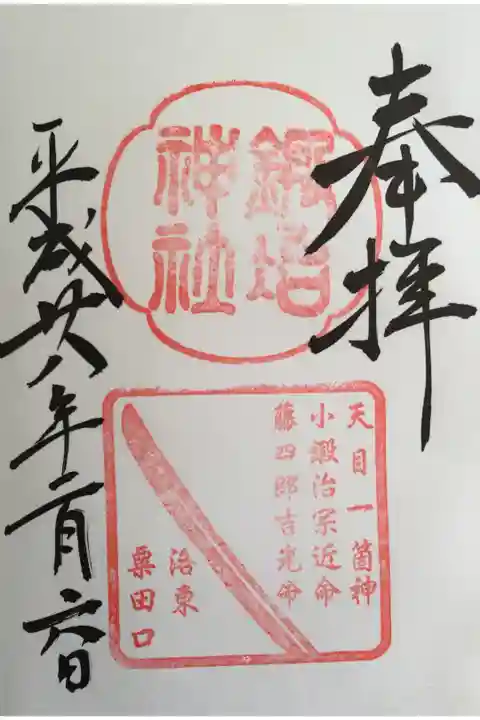 奉拝
鍛冶
神社
天目一箇神
小鍛治宗近命
藤四郎吉光命
洛東
粟田口
平成廿八年二月六日